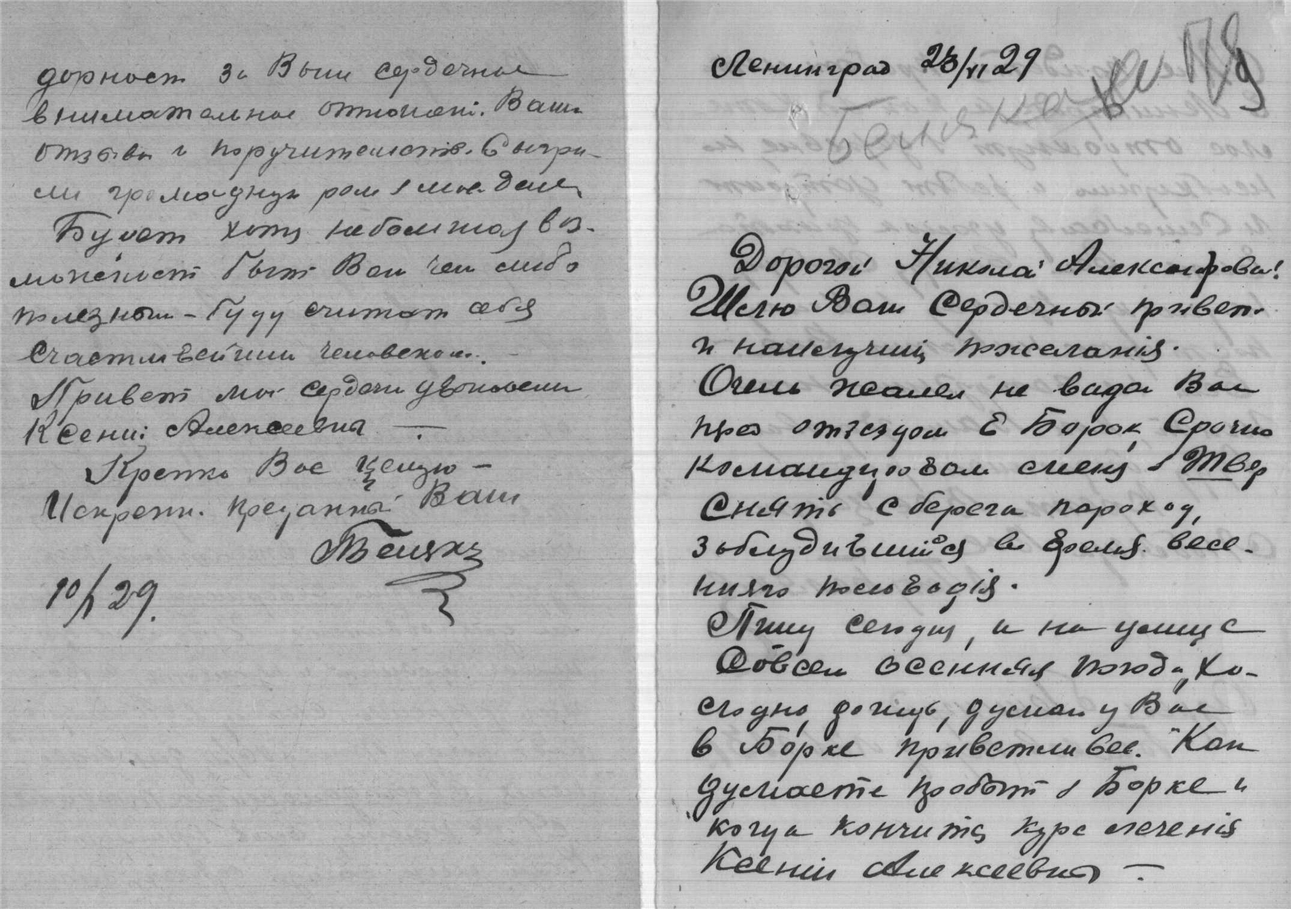 дарност за Ваши сердечное
внимательное отношен. Ваши
отзывы и поручительств. Сыгра-
ли громадную рол в моем деле,
Будет хотя небольшая воз-
можност быт Вам чем либо
полезным - буду считат себя
Счастливейшим человеком.
Привет мой сердечн
Ксении Алексеевна —
Крепко Вас целую —
Искренн. преданный Ваш
10/ 29.
Ленинград 28/VI 29
Дорогой Николай Александрович!
Шлю Вам Сердечный привет.
и наилучший пожелания.
Очень жалел не видя Вас
пред отъездом в Борок, Срочно
командировали меня в Твер
Снять с берега пароход,
заблудившийся во время весе-
нняго половодія.
Пишу сегодня, и на улице
Совсем осенняя погода, Хо-
лодно, дождь, думаю у Вас
в Борке приветливее. Как
думаете пробыт в Борке и
когда кончится курс лечения
Ксении Алексеевны —